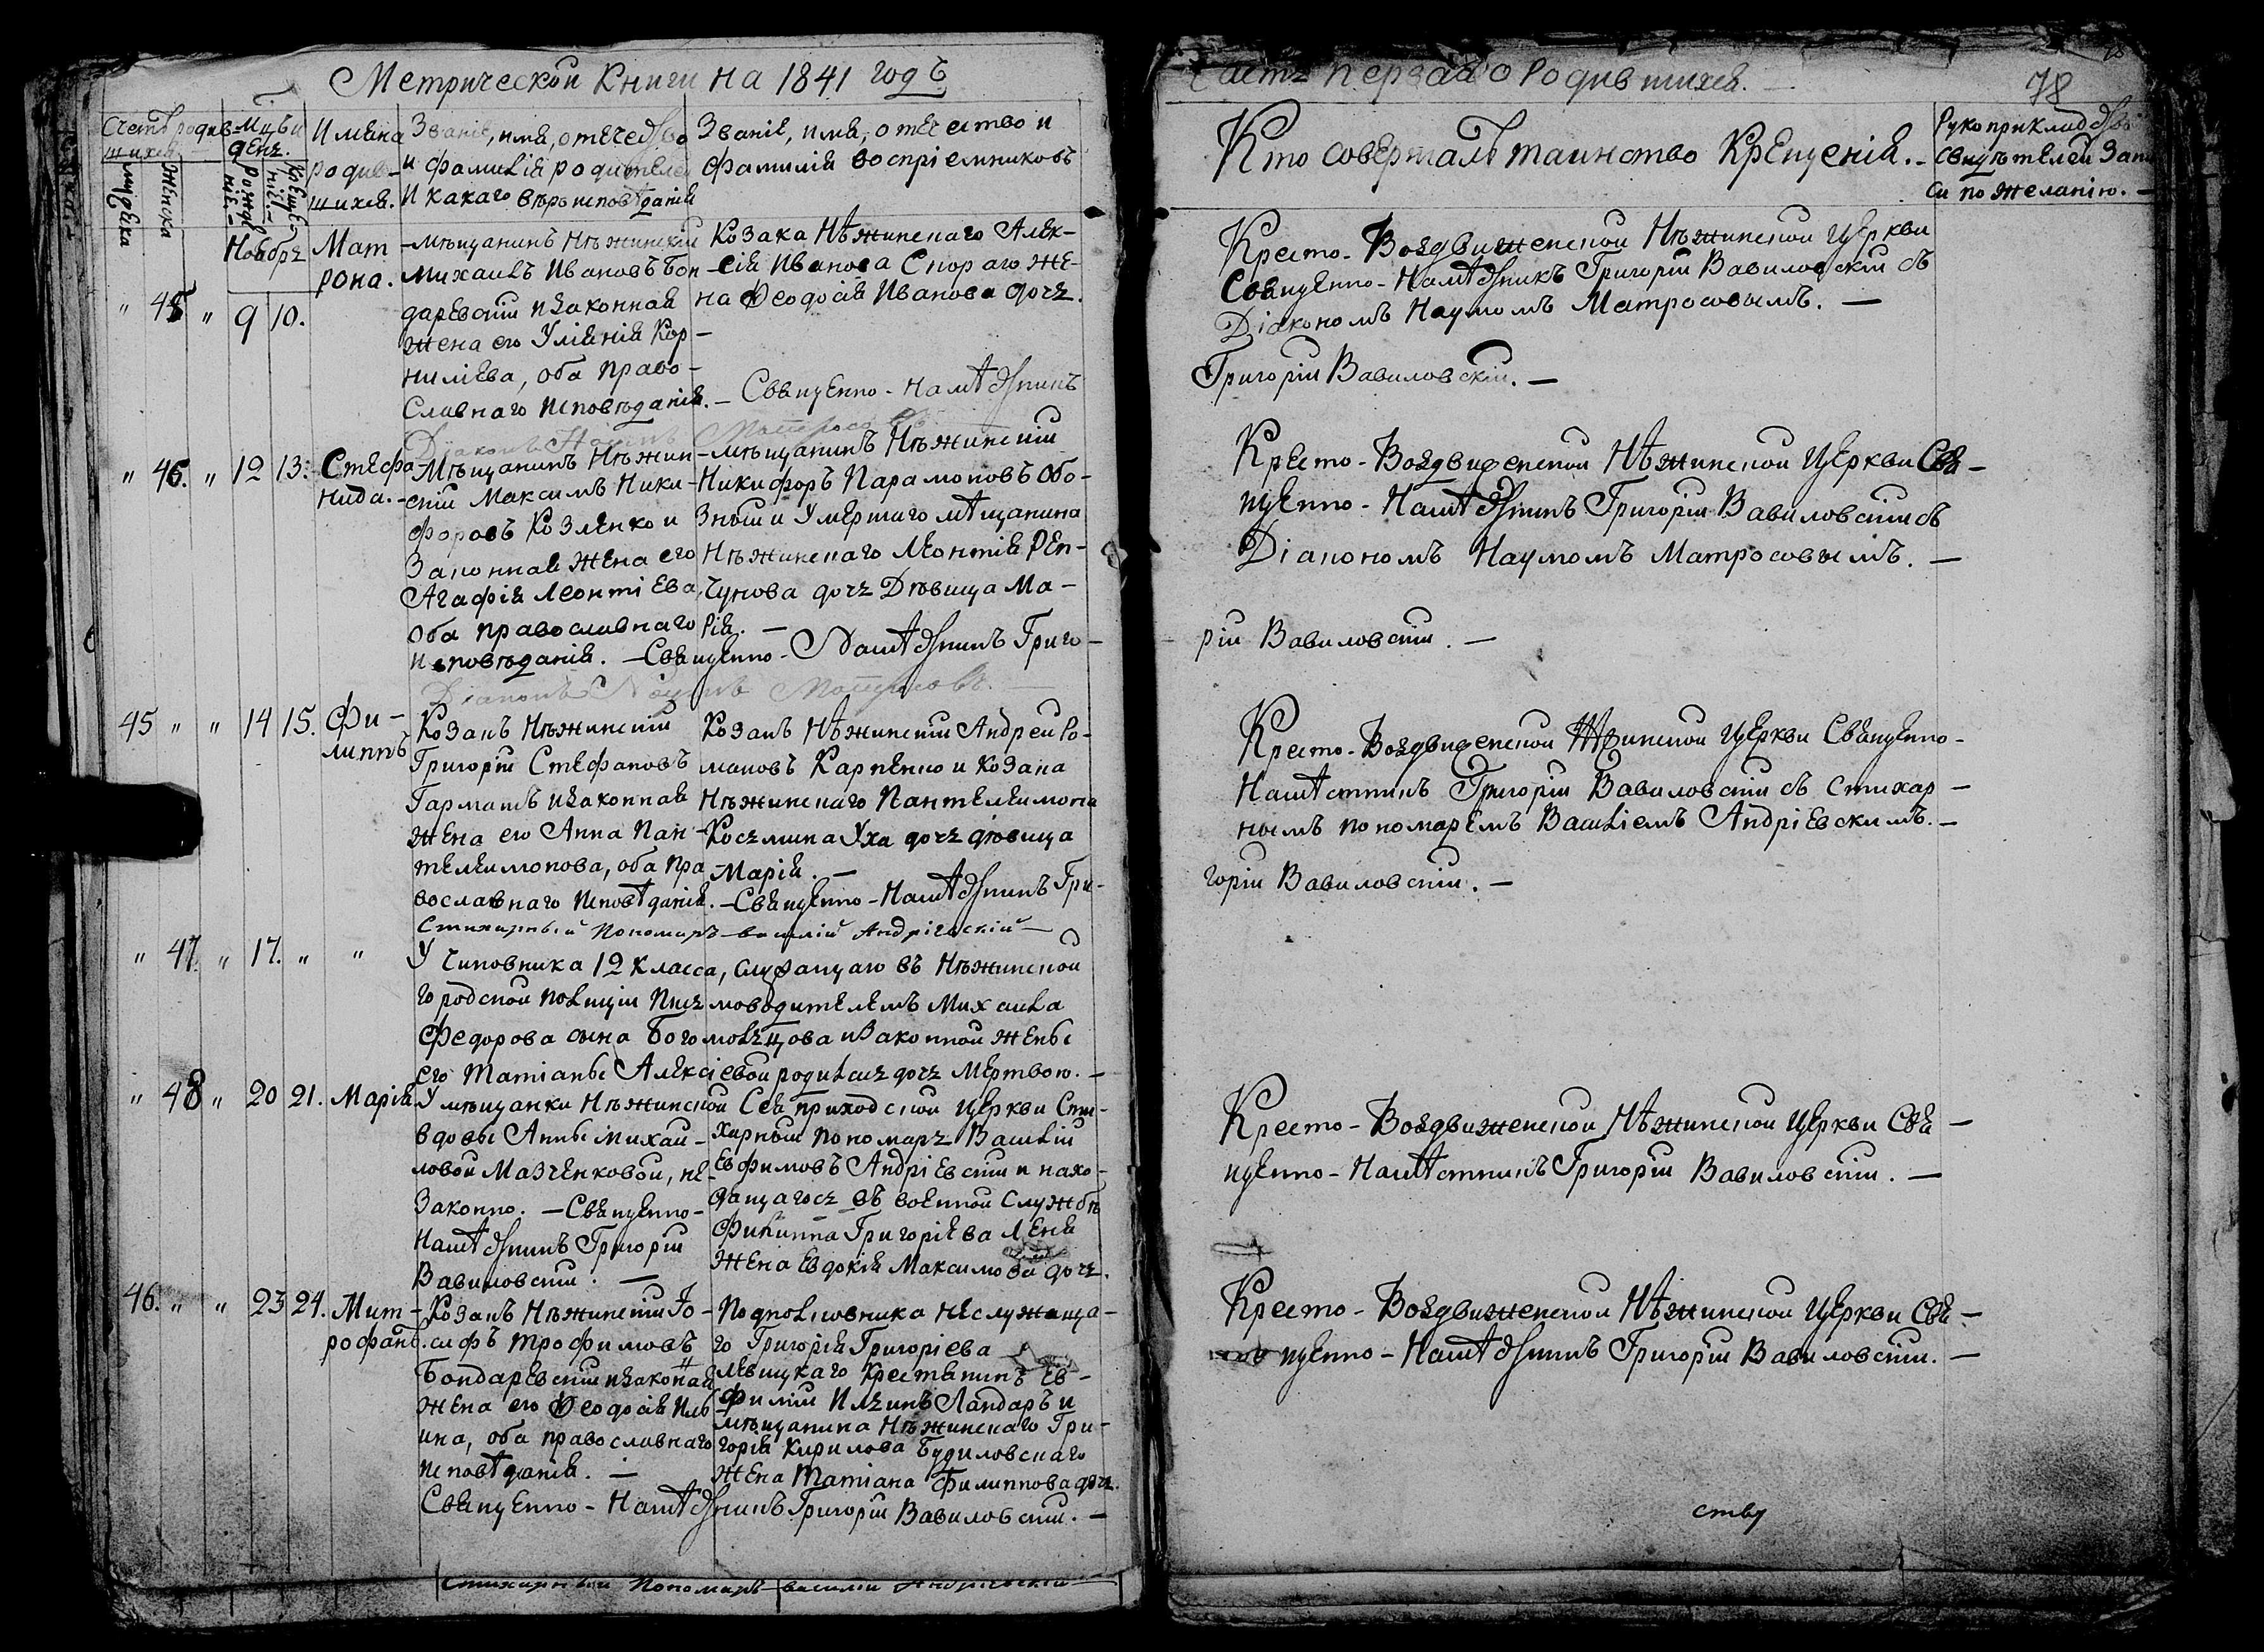 Метрической Книги на 1841 годъ
Счетъ родив-
шихся.
Мцъ и
день.
Имена
родив-
шихся.
Званіе, имя, отечество
и фамилія родителей
и какаго вѣроисповѣданія
Званіе, имя, отечество и
фамилія воспріемниковъ
мужеска
женска
рожде
ніе.
креще
ніе.
Ноябрь
" 45 " 9 10.
Мат
рона.
-мѣщанинъ Нѣжинскій
Михаилъ Ивановъ Бон-
даревскій и законная
жена его Уліянія Кор-
нилиева, оба право-
славнаго исповѣданія. - Священно-Намѣстникъ
Козака Нѣжинскаго Алек-
сія Иванова Спораго же-
на Ѳеодосія Иванова дочь.
Діаконъ Наумъ Матросовъ
" 46. " 12 13.
Стефа-
нида.
-Мѣщанинъ Нѣжин-
скій Максимъ Ники-
форовъ Козленко и
законная жена его
Агафія Леонтіева,
оба православнаго
исповѣданія. - Священно-Намѣстникъ Григо-
-мѣщанинъ Нѣжинскій
Никифоръ Парамоновъ Обо-
зный и умершаго мѣщанина
Нѣжинскаго Леонтія Реп-
чунова дочь Дѣвица Ма-
рія. -
Діаконъ Наумъ Матросовъ.
45 " " 14 15.
Фи-
липпъ
Козакъ Нѣжинскій
Григорій Стефановъ
Гармашъ и законная
жена его Анна Пан-
телеимонова, оба пра-
вославнаго исповѣданія. - Священно-Намѣстникъ Гри-
Козакъ Нѣжинскій Андрей Ро-
мановъ Карпенко и козака
Нѣжинскаго Пантелеимона
Косьмина Уха дочь дѣвица
Марія. -
Стихарный Пономарь Василій Андріевскій
" 47. " 17. " "
У Чиновника 12 класса, служащаго въ Нѣжинской
городской полиціи письмоводителемъ Михаила
Федорова сына Богомольцова и законной жены
его Татіаны Алексіевой родилась дочь мертвою. -
" 48 " 20 21. Марія
У мѣщанки Нѣжинской
вдовы Анны Михай-
ловой Мазченковой, не-
законно. - Священно-
Намѣстникъ Григорій
Вавиловскій. -
Сея приходской церкви Сти-
харный пономарь Василій
Евфимовъ Андріевскій и нахо-
дящагось въ военной службѣ
Филиппа Григоріева Леня
жена Евдокія Максимова дочь.
46. " " 23 24.
Мит-
рофанъ.
-Козакъ Нѣжинскій Іо-
сифъ Трофимовъ
Бондаревскій и законная
жена его Ѳеодосія Иль-
ина, оба православнаго
исповѣданія. -
Подполковника неслужаща-
го Григорія Григоріева
Левицкаго крестьянинъ Ев-
фимій Ильинъ Ландаръ и
мѣщанина Нѣжинскаго Гри-
горія Кирилова Будиловскаго
жена Татіана Филиппова дочь.
Священно-Намѣстникъ Григорій Вавиловскій. -
Стихарный Пономарь Василій Андріевскій
Часть первая о Родившихся.
78
Кто совершалъ таинство Крещенія.
Рукоприкладство
свидѣтелей запи
си по желанію.
Кресто-Воздвиженской Нѣжинской Церкви
Священно-Намѣстникъ Григорій Вавиловскій съ
Діакономъ Наумомъ Матросовымъ. -
Григорій Вавиловскій. -
Кресто-Воздвиженской Нѣжинской Церкви Свя-
щенно-Намѣстникъ Григорій Вавиловскій съ
Діакономъ Наумомъ Матросовымъ. -
рій Вавиловскій. -
Кресто-Воздвиженской Нѣжинской Церкви Священно-
Намѣстникъ Григорій Вавиловскій съ Стихар-
нымъ пономаремъ Василіемъ Андріевскимъ. -
горій Вавиловскій. -
Кресто-Воздвиженской Нѣжинской Церкви Свя-
щенно-Намѣстникъ Григорій Вавиловскій. -
Кресто-Воздвиженской Нѣжинской Церкви Свя-
щенно-Намѣстникъ Григорій Вавиловскій. -
ству